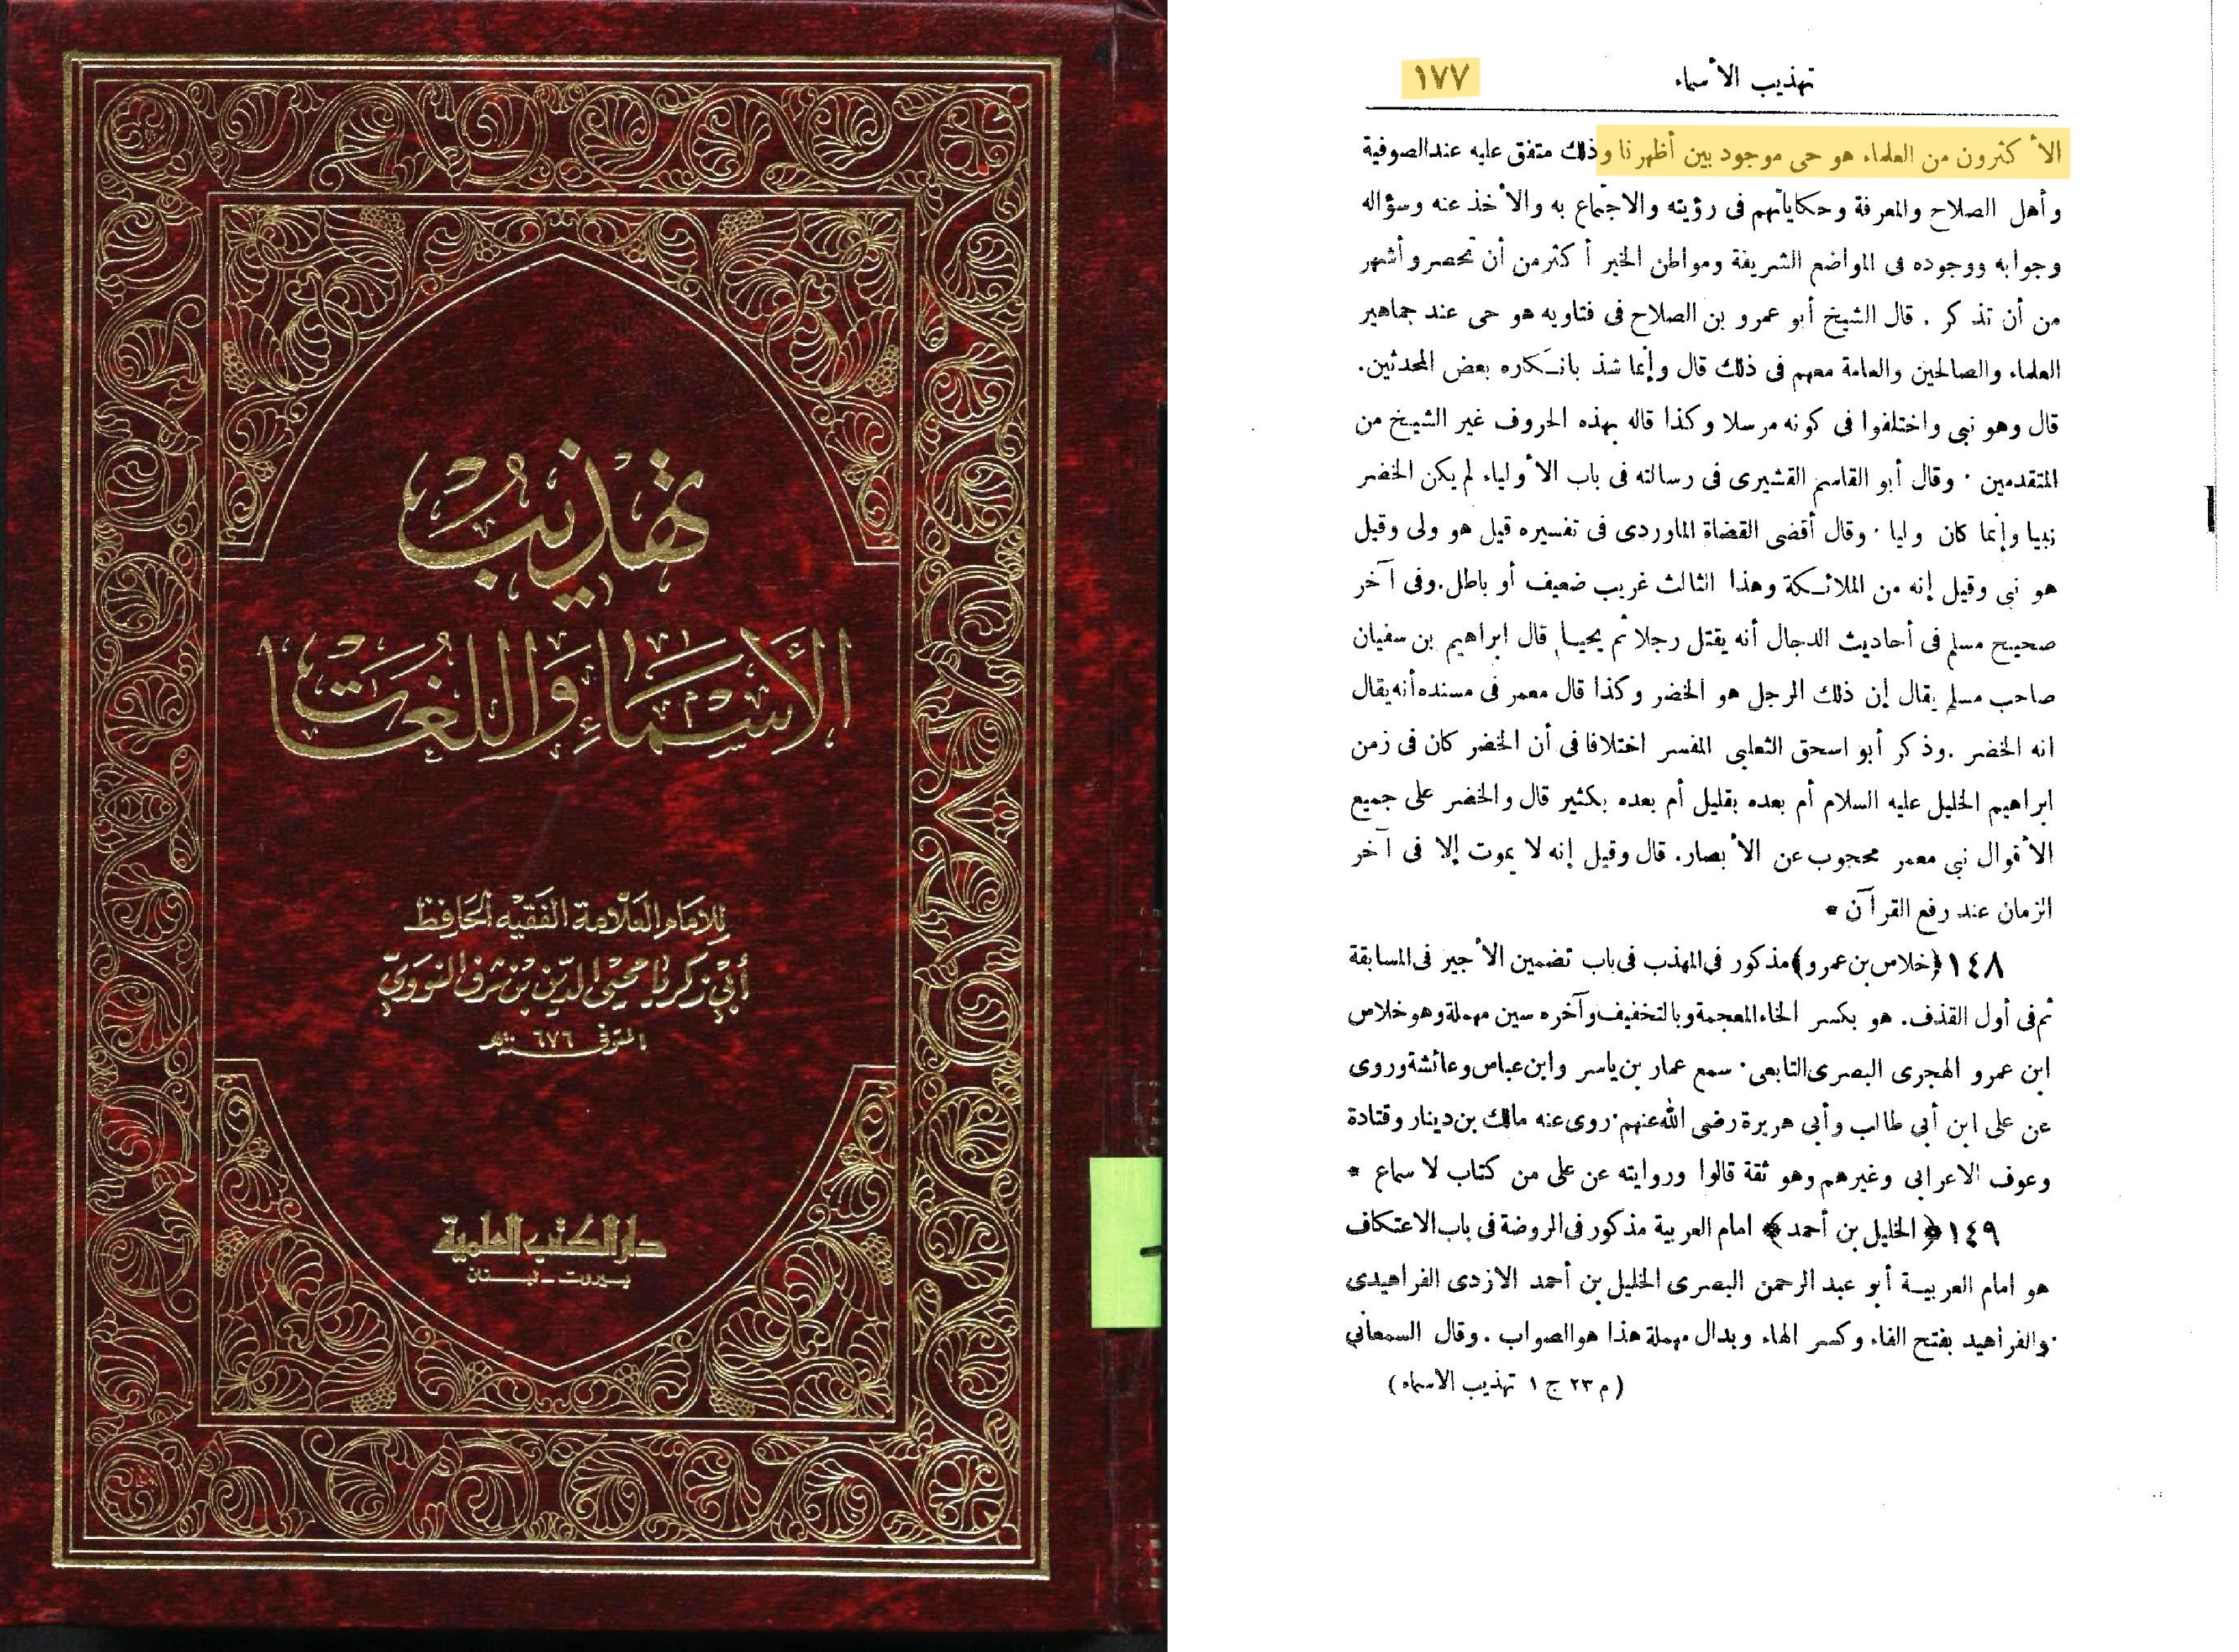 تهذيب
الأسماء واللغات
للإمام العلامة الفقيه الحافظ
أبي زكريا محيي الدين بن شرف النووي
المتوفى سنة ٦٧٦ هـ
دار الكتب العلمية
بيروت - لبنان
تهذيب الأسماء ١٧٧
الأكثرون من العلماء هو حى موجود بين أظهرنا وذلك متفق عليه عند الصوفية
وأهل الصلاح والمعرفة وحكاياتهم فى رؤيته والاجتماع به والأخذ عنه وسؤاله
وجوابه ووجوده فى المواضع الشريفة ومواطن الخير أكثر من أن تحصر وأشهر
من أن تذكر . قال الشيخ أبو عمرو بن الصلاح فى فتاويه هو حى عند جماهير
العلماء والصالحين والعامة معهم فى ذلك قال وإنما شذ بانكاره بعض المحدثين.
قال وهو نبى واختلفوا فى كونه مرسلا وكذا قاله بهذه الحروف غير الشيخ من
المتقدمين . وقال أبو القاسم القشيرى فى رسالته فى باب الأولياء لم يكن الخضر
نبيا وإنما كان وليا . وقال أقضى القضاة الماوردى فى تفسيره قيل هو ولى وقيل
هو نبى وقيل إنه من الملائكة وهذا الثالث غريب ضعيف أو باطل. وفى آخر
صحيح مسلم فى أحاديث الدجال أنه يقتل رجلا ثم يحيا, قال ابراهيم بن سفيان
صاحب مسلم يقال إن ذلك الرجل هو الخضر وكذا قال معمر فى مسنده أنه يقال
انه الخضر . وذكر أبو اسحق الثعلبى المفسر اختلافا فى أن الخضر كان فى زمن
ابراهيم الخليل عليه السلام أم بعده بقليل أم بعده بكثير قال والخضر على جميع
الأقوال نبى معمر محجوب عن الأبصار. قال وقيل إنه لا يموت إلا فى آخر
الزمان عند رفع القرآن *
١٤٨ ﴿خلاس بن عمرو﴾ مذكور فى المهذب فى باب تضمين الأجير فى المسابقة
ثم فى أول القذف. هو بكسر الخاء المعجمة وبالتخفيف وآخره سين مهملة وهو خلاس
ابن عمرو الهجرى البصرى التابعى . سمع عمار بن ياسر وابن عباس وعائشة وروى
عن على ابن أبى طالب وأبى هريرة رضى الله عنهم . روى عنه مالك بن دينار وقتادة
وعوف الاعرابى وغيرهم وهو ثقة قالوا وروايته عن على من كتاب لا سماع *
١٤٩ ﴿ الخليل بن أحمد ﴾ امام العربية مذكور فى الروضة فى باب الاعتكاف
هو امام العربية أبو عبد الرحمن البصرى الخليل بن أحمد الازدى الفراهيدى
والفراهيد بفتح الفاء وكسر الهاء وبدال مهملة هذا هو الصواب . وقال السمعانى
( م ٢٣ ج ١ تهذيب الاسماء )